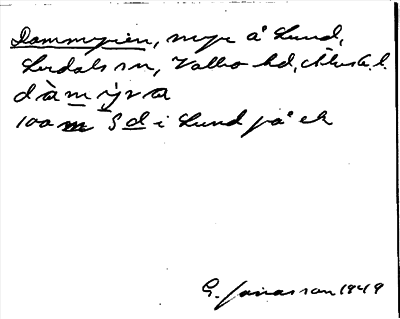 Dammyren, myr å Lund,
Lerdals sn, Valbo hd, Älvsb. l.
dàmýra
100 m S d i Lund på ek
G. Jonasson 1949